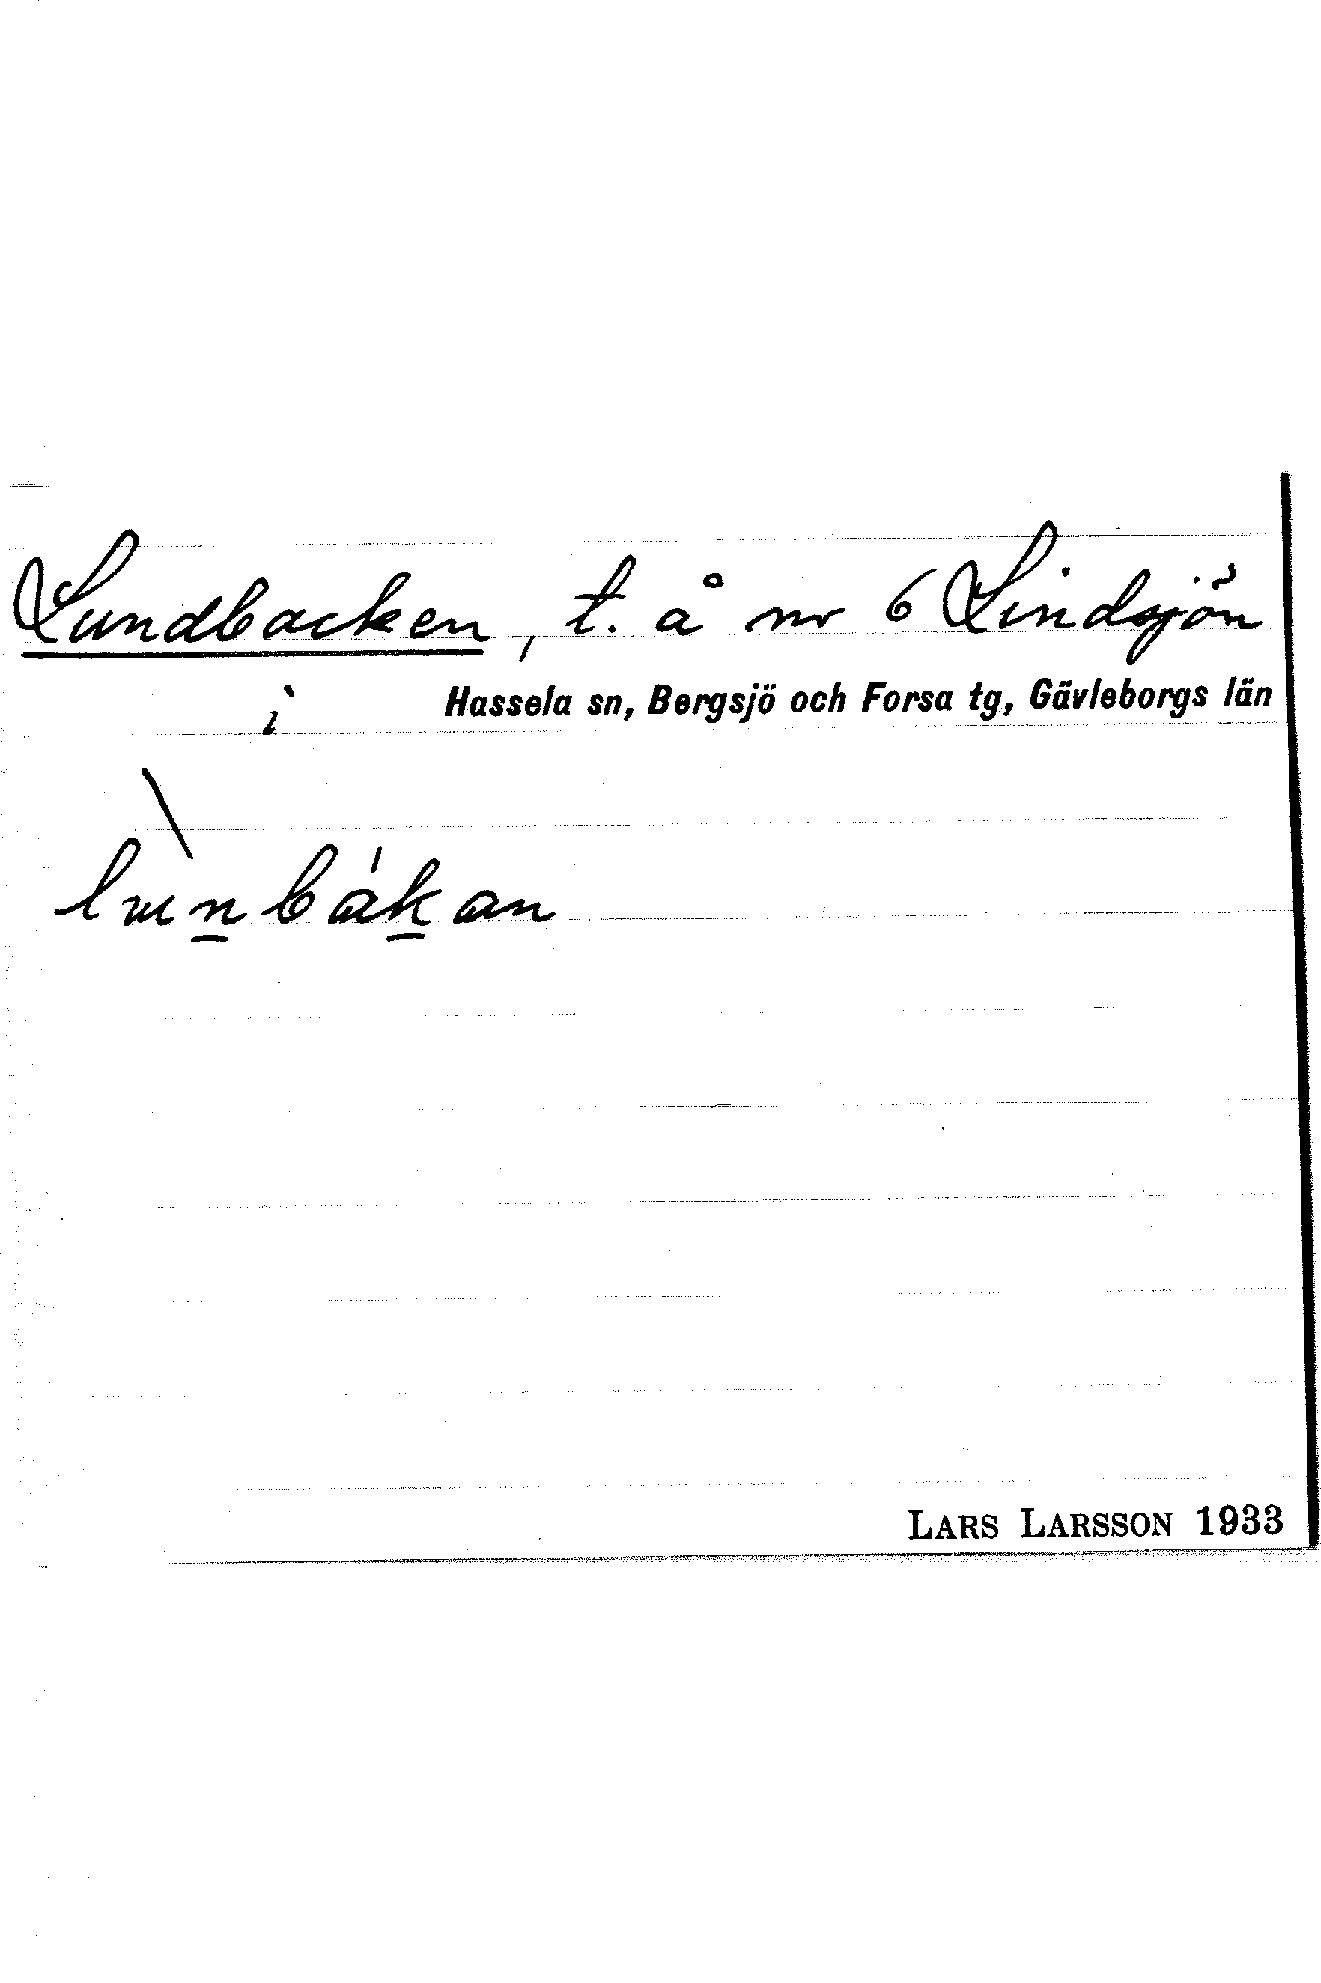 Lundbacken, t. å nr 6 Lindsjön
i Hassela sn, Bergsjö och Forsa tg, Gävleborgs län
LARS LARSSON 1933